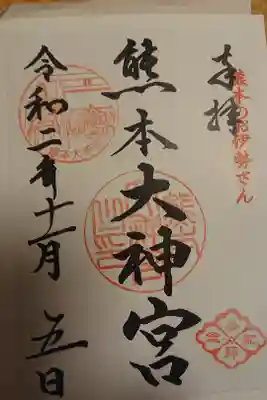 奉拝
熊本のお伊勢さん
熊本大神宮
令和二年十一月五日